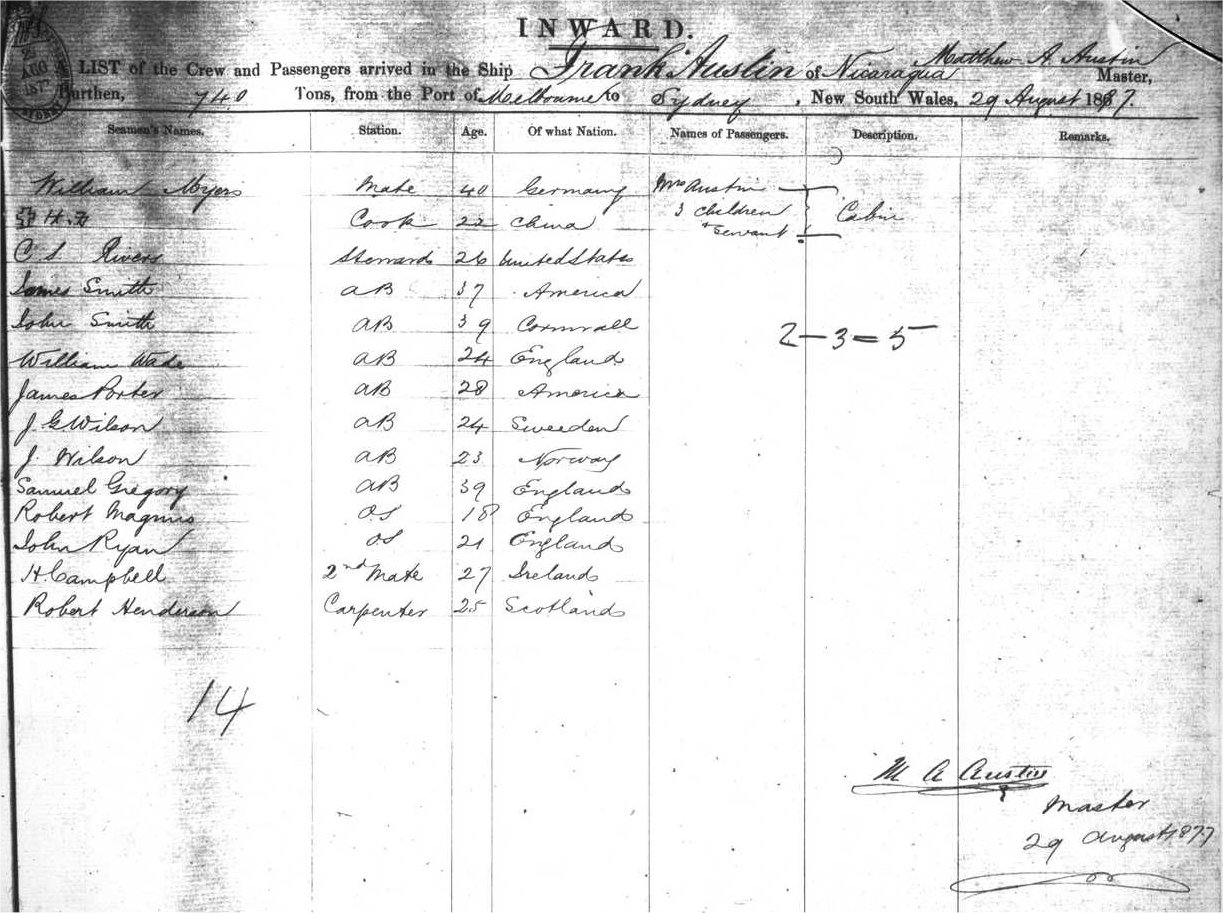 INWARD.
LIST of the Crew and Passengers arrived in the Ship Frank Austin of Nicaragua Matthew A. Austin Master,
Burthen, 740 Tons, from the Port of Melbourne to Sydney, New South Wales, 29 August 1877.
Seamen's Names. Station. Age. Of what Nation. Names of Passengers. Description. Remarks.
William Myers Mate 40 Germany Mrs Austin
Cook 22 China 3 Children Cabin
+ Servant
C S Rivers Steward 26 United States
James Smith AB 37 America
John Smith AB 39 Cornwall
2 - 3 = 5
William Wake AB 24 England
James Porter AB 28 America
J. G. Wilson AB 24 Sweeden
J. Wilson AB 23 Norway
Samuel Gregory AB 39 England
Robert Magnus OS 18 England
John Ryan OS 21 England
H. Campbell 2nd Mate 27 Ireland
Robert Henderson Carpenter 25 Scotland
14
M A Austin
Master
29 August 1877